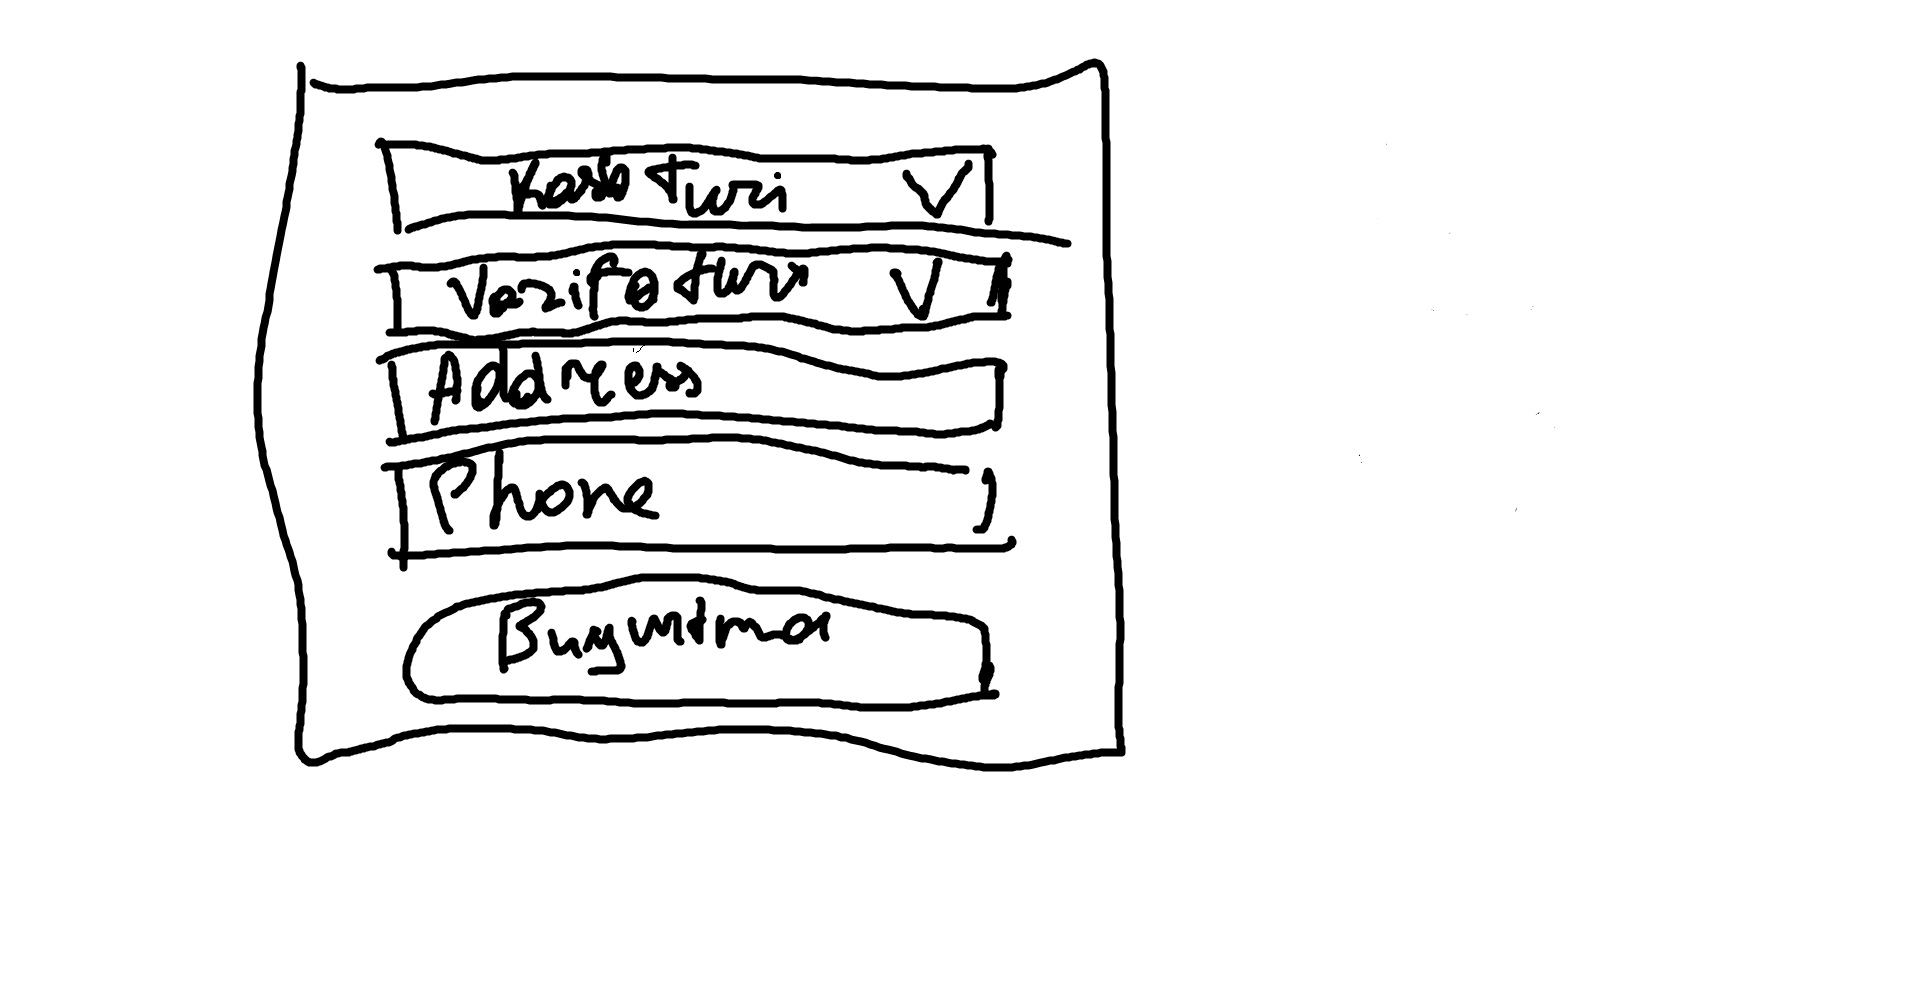 Kasb turi
Vazifa turi
Address
Phone
Buyurtma